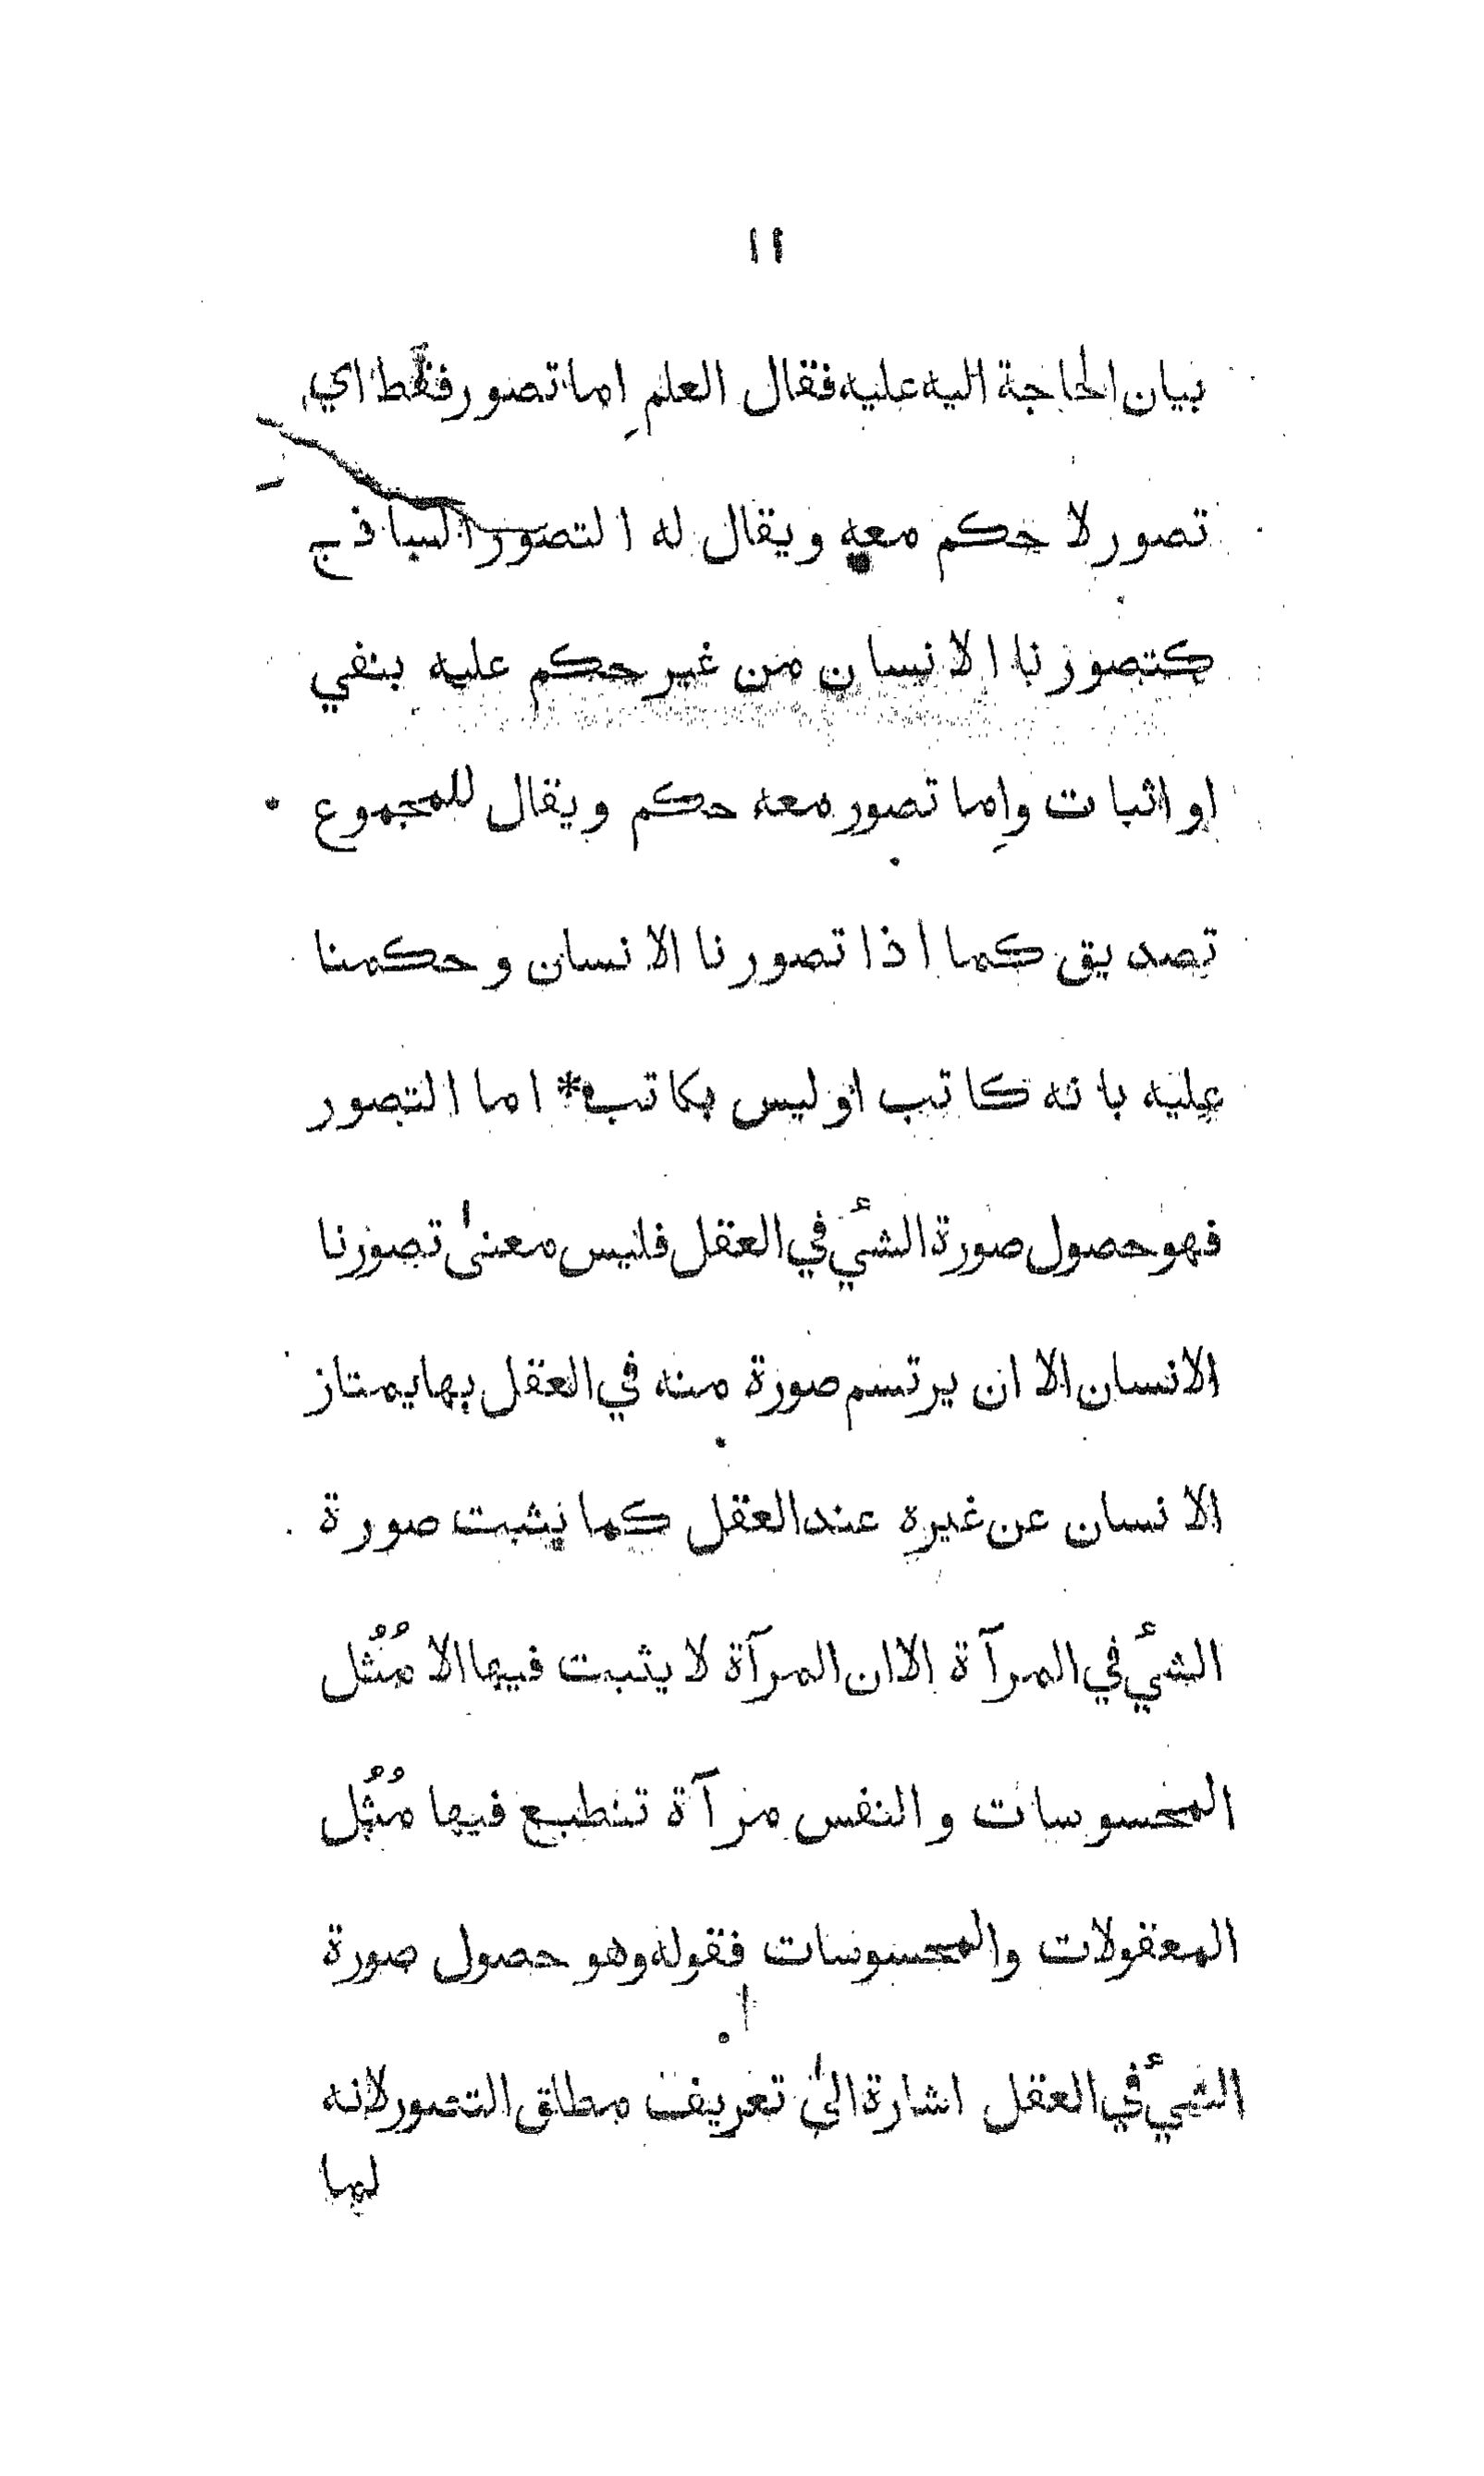 ١١
بيان الحاجة اليه عليه فقال العلم اِما تصور فقط اي
تصور لا حكم معه ويقال له التصور الساذج
كتصورنا الانسان من غير حكم عليه بنفي
او اثبات واِما تصور معه حكم ويقال للمجموع
تصديق كما اذا تصورنا الانسان وحكمنا
عليه بانه كاتب او ليس بكاتب * اما التصور
فهو حصول صورة الشئ في العقل فليس معنىٰ تصورنا
الانسان الا ان يرتسم صورة منه في العقل بها يمتاز
الانسان عن غيره عند العقل كما يثبت صورة
الشئ في المرآة الا ان المرآة لا يثبت فيها الا مُثُل
المحسوسات والنفس مرآة تنطبع فيها مُثُل
المعقولات والمحسوسات فقوله وهو حصول صورة
الشئ في العقل اشارة الىٰ تعريف مطلق التصور لانه
لما